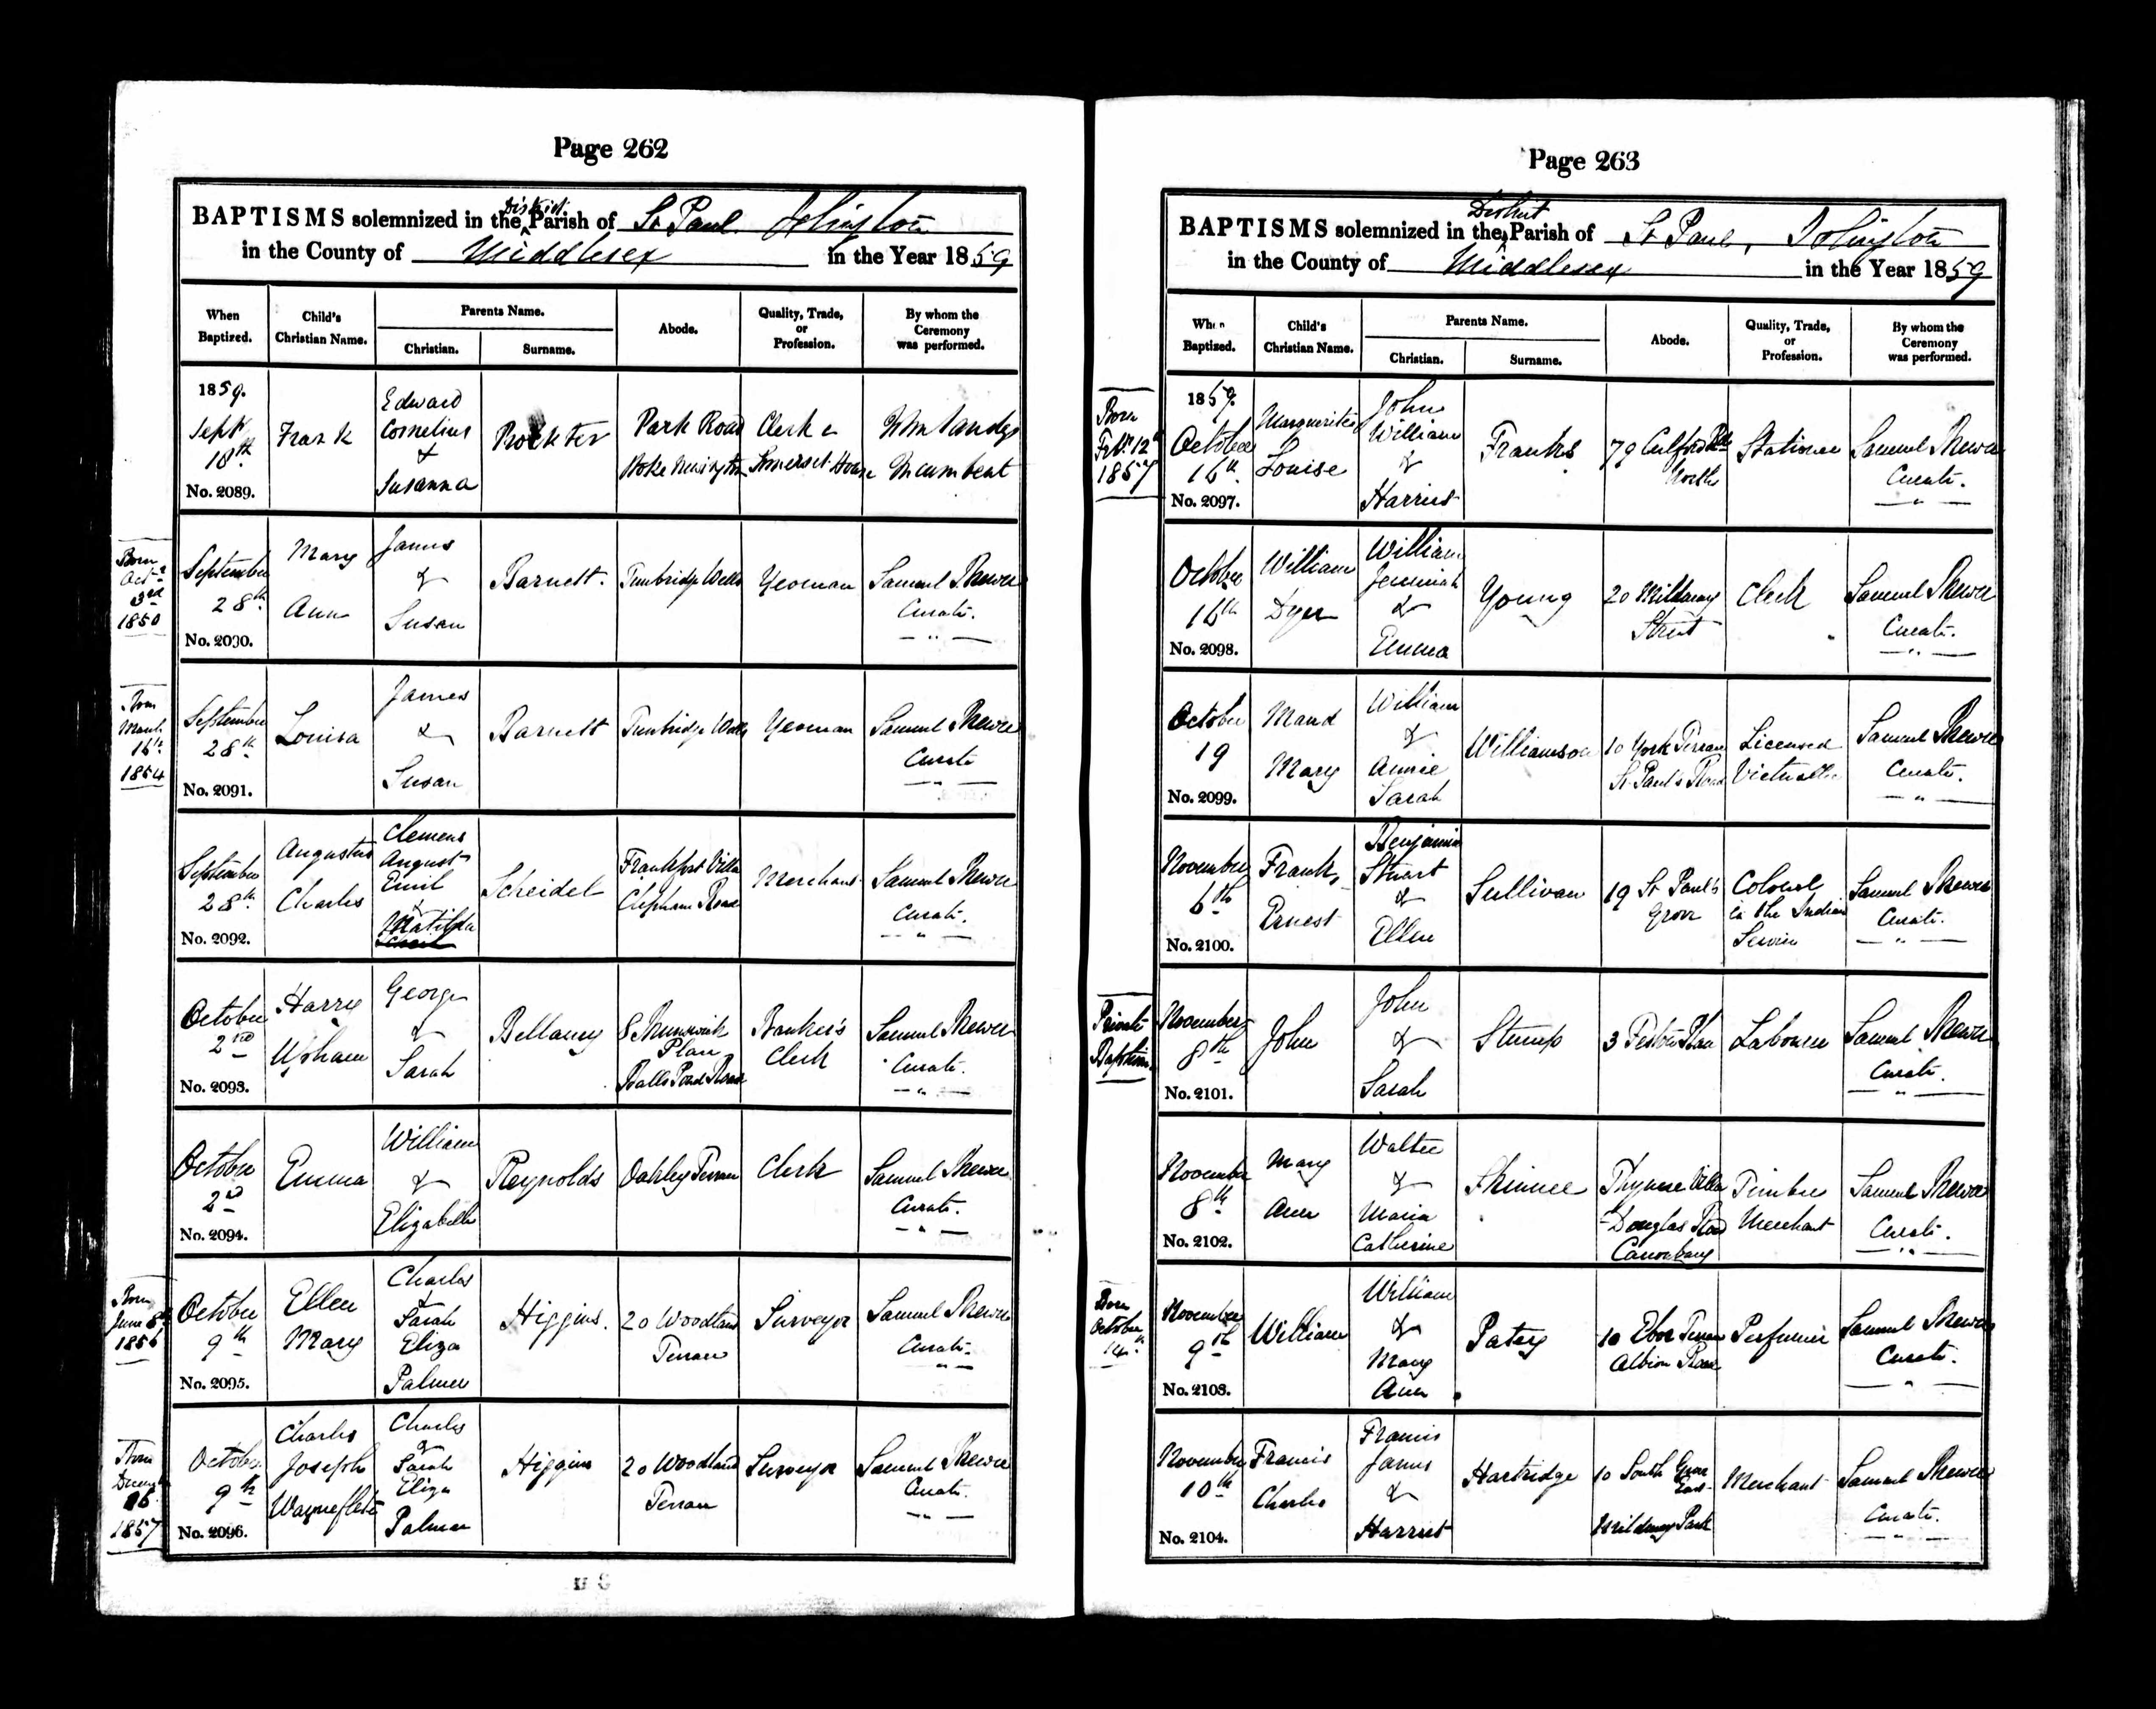 Page 262
BAPTISMS solemnized in the District Parish of St Paul Islington
in the County of Middlesex in the Year 1859
When Baptized.
Child's Christian Name.
Parents Name.
Christian.
Surname.
Abode.
Quality, Trade, or Profession.
By whom the Ceremony was performed.
1859.
Sept
18th
No. 2089.
Frank
Edward
Cornelius
&
Susanna
Prockter
Park Road
Stoke Newington
Clerk
Somerset House
Incumbent
Born
Oct
3rd
1850
September
28th
No. 2090.
Mary
Ann
James
&
Susan
Barnett.
Tunbridge Wells
Yeoman
Samuel
Curate.
Born
March
16th
1854
September
28th
No. 2091.
Louisa
James
&
Susan
Barnett
Tunbridge Wells
Yeoman
Samuel
Curate
September
28th
No. 2092.
Augustus
Charles
Clemens
August
Emil
&
Matilda
Scheidel
Frankfort Villa
Clapham Road
Merchant
Samuel
Curate.
October
2nd
No. 2093.
Harry
Upham
George
&
Sarah
Bellamy
8 Brunswick
Place
Balls Pond Road
Banker's
Clerk
Samuel
Curate.
October
2nd
No. 2094.
Emma
William
&
Elizabeth
Reynolds
Oakley Terrace
Clerk
Samuel
Curate.
Born
June 8th
1856
October
9th
No. 2095.
Ellen
Mary
Charles
&
Sarah
Eliza
Palmer
Higgins.
20 Woodland
Terrace
Surveyor
Samuel
Curate.
Born
Decemb
26
1857
October
9th
No. 2096.
Charles
Joseph
Waynflete
Charles
&
Sarah
Eliza
Palmer
Higgins
20 Woodland
Terrace
Surveyor
Samuel
Curate.
Page 263
BAPTISMS solemnized in the District Parish of St Paul, Islington
in the County of Middlesex in the Year 1859
When Baptized.
Child's Christian Name.
Parents Name.
Christian.
Surname.
Abode.
Quality, Trade, or Profession.
By whom the Ceremony was performed.
Born
Feb. 12th
1857
1859.
October
16th
No. 2097.
Marguerite
Louise
John
William
&
Harriet
Franks
79 Culford Rd
North
Stationer
Samuel
Curate.
October
16th
No. 2098.
William
Dyer
William
Jeremiah
&
Emma
Young
20 Mildmay
Street
Clerk
Samuel
Curate.
October
19
No. 2099.
Maud
Mary
William
&
Annie
Sarah
Williamson
10 York Terrace
St Paul's Road
Licensed
Victualler
Samuel
Curate.
November
6th
No. 2100.
Frank
Ernest
Benjamin
Stuart
&
Ellen
Sullivan
19 St Paul's
Grove
Colonel
in the Indian
Service
Samuel
Curate.
Private
Baptism.
November
8th
No. 2101.
John
John
&
Sarah
Stump
3 Place
Labourer
Samuel
Curate.
November
8th
No. 2102.
Mary
Ann
Walter
&
Maria
Catherine
Skinner
Thynne Villa
Douglas Road
Canonbury
Timber
Merchant
Samuel
Curate.
Born
October
14th.
November
9th
No. 2103.
William
William
&
Mary
Ann
Patey
10 Ebor Terrace
Albion Road
Perfumer
Samuel
Curate.
November
10th
No. 2104.
Francis
Charles
Francis
James
&
Harriet
Hartridge
10 South Grove
East
Mildmay Park
Merchant
Samuel
Curate.